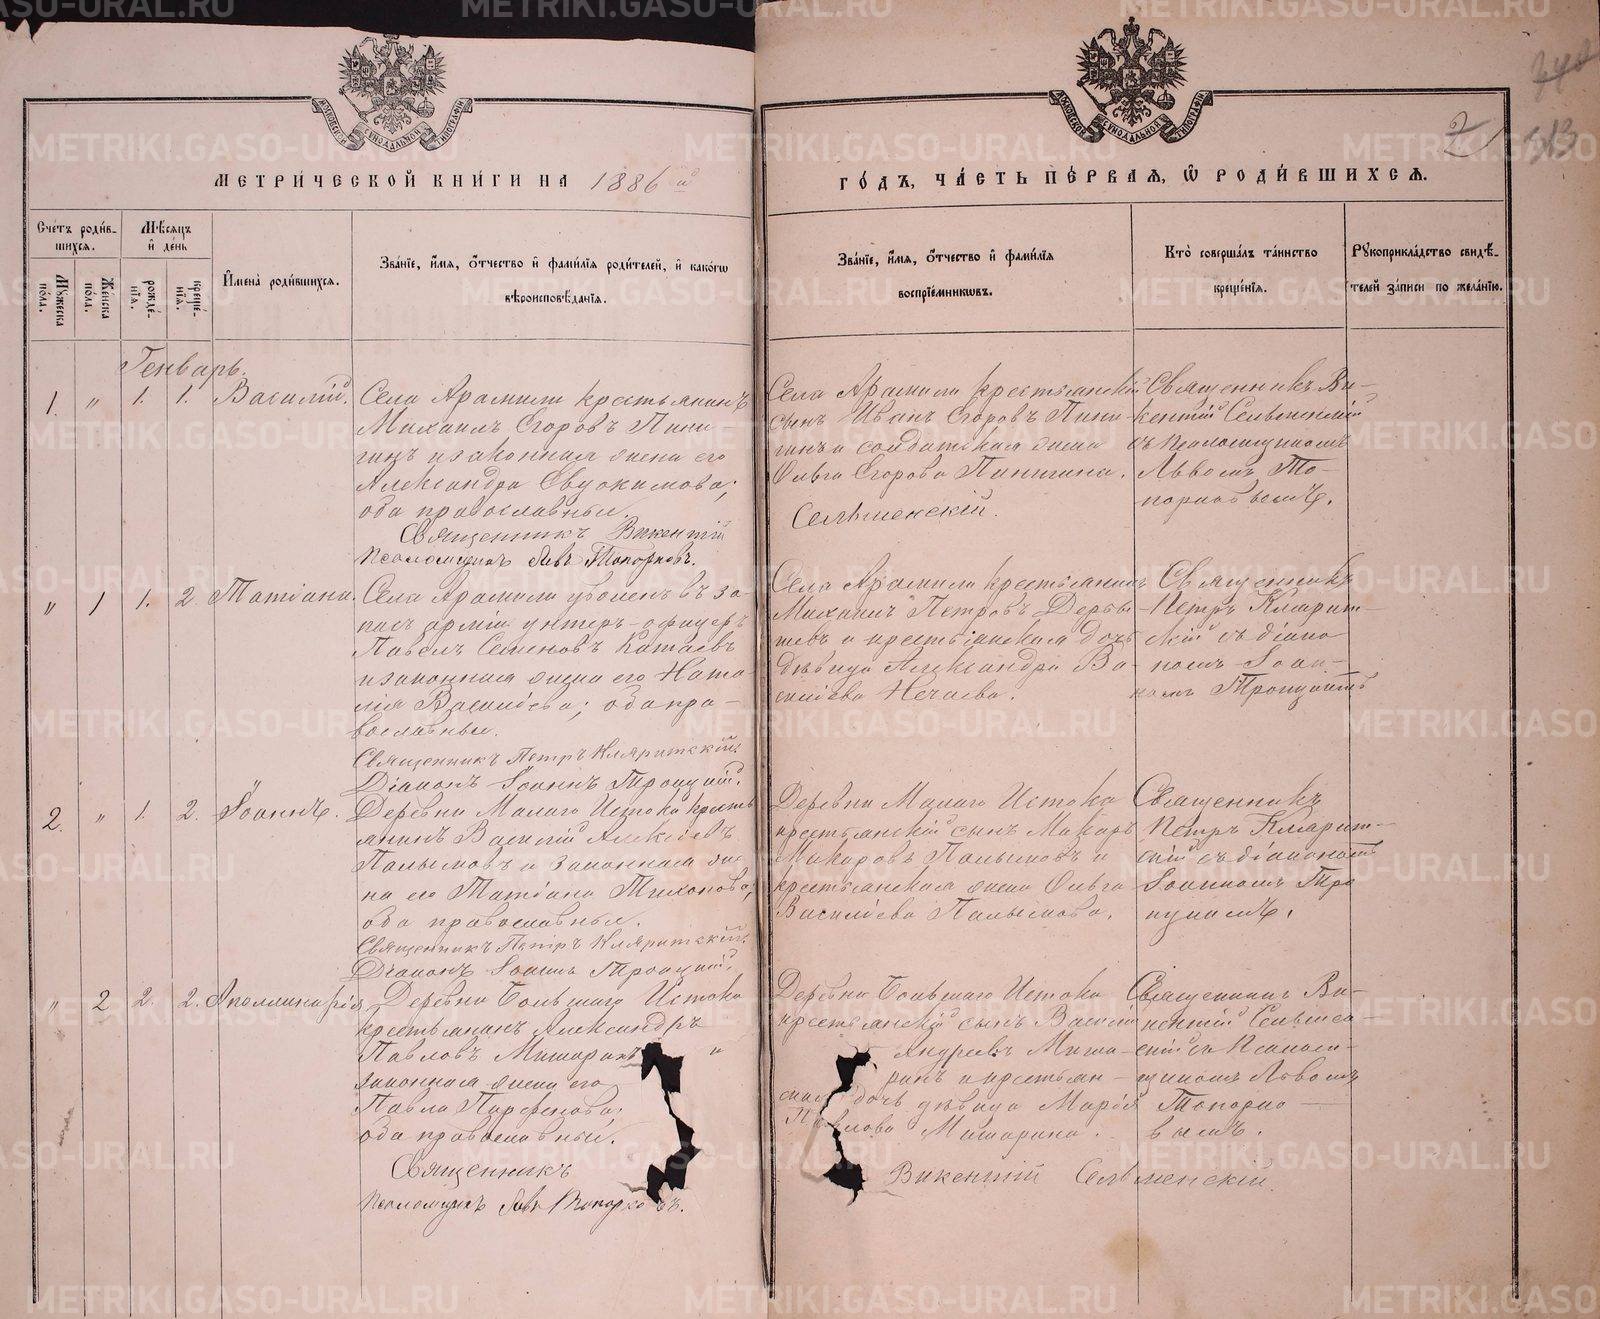 МЕТРИ́ЧЕСКОЙ КНИ́ГИ НА 1886 й
ГО́ДЪ, ЧА́СТЬ ПЕ́РВАЯ, Ѡ РОДИ́ВШИХСЯ.
2
513
МОСКОВСКОЙ СѴНОДАЛЬНОЙ ТИПОГРАФІИ
МОСКОВСКОЙ СѴНОДАЛЬНОЙ ТИПОГРАФІИ
Сче́тъ роди́в-
шихся.
Му́жеска по́ла.
Же́нска по́ла.
Мѣ́сяцъ
и де́нь
рожде́-
нїя.
креще́-
нїя.
И҆мена̀ роди́вшихся.
Зва́нїе, и҆́мя, ѻ҆́тчество и҆ фами́лїя роди́телей, и҆ како́гѡ
вѣроисповѣ́данїя.
Зва́нїе, и҆́мя, ѻ҆́тчество и҆ фами́лїя
воспрїе́мникѡвъ.
Кто̀ соверша́лъ та́инство
креще́нїя.
Рꙋкоприкла́дство свидѣ́-
телей за́писи по жела́нїю.
Генварь.
1. " 1. 1. Василій.
Села Арамили крестьянинъ
Михаилъ Егоровъ Пини-
гинъ и законная жена его
Александра Евдокимова;
оба православные.
Священникъ Викентій
Псаломщикъ Левъ Топорковъ.
Села Арамили крестьянскій
сынъ Иванъ Егоровъ Пини-
гинъ и солдатская жена
Ольга Егорова Пинигина.
Сельменскій.
Священникъ Ви-
кентій Сельменскій
съ псаломщикомъ
Львомъ То-
порковымъ.
" 1 1. 2. Татіана.
Села Арамили уволенъ въ за-
пасъ арміи унтеръ-офицеръ
Павелъ Семеновъ Катаевъ
и законная жена его Ната-
лія Васильева; оба пра-
вославные.
Священникъ Петръ Кляритскій
Діаконъ Іоаннъ Троицкій.
Села Арамили крестьянинъ
Михаилъ Петровъ Дербы-
шевъ и крестьянская дочь
дѣвица Александра Ва-
сильева Нечаева.
Священникъ
Петръ Кларит-
скій съ діако-
номъ Іоан-
номъ Троицкимъ
2. " 1. 2. Іоаннъ.
Деревни Малаго Истока кресть-
янинъ Василій Алексѣевъ
Палымовъ и законная же-
на его Татіана Тихонова;
оба православные.
Священникъ Петръ Кляритскій
Діаконъ Іоаннъ Троицкій.
Деревни Малаго Истока
крестьянскій сынъ Макаръ
Макаровъ Палымовъ и
крестьянская жена Ольга
Васильева Палымова.
Священникъ
Петръ Кларит-
скій съ діакономъ
Іоанномъ Тро-
ицкимъ.
" 2 2. 2. Аполлинарія
Деревни Большаго Истока
крестьянинъ Александръ
Павловъ Мишаринъ и
законная жена его
Павла Парфенова;
оба православные.
Священникъ
Псаломщикъ Левъ Топорковъ.
Деревни Большаго Истока
крестьянскій сынъ Василій
Андреевъ Миша-
ринъ и крестьян-
ская дочь дѣвица Марія
Павлова Мишарина.
Викентій Сельменскій
Священникъ Ви-
кентій Сельмен-
скій съ псалом-
щикомъ Львомъ
Топорко-
вымъ.
METRIKI.GASO-URAL.RU